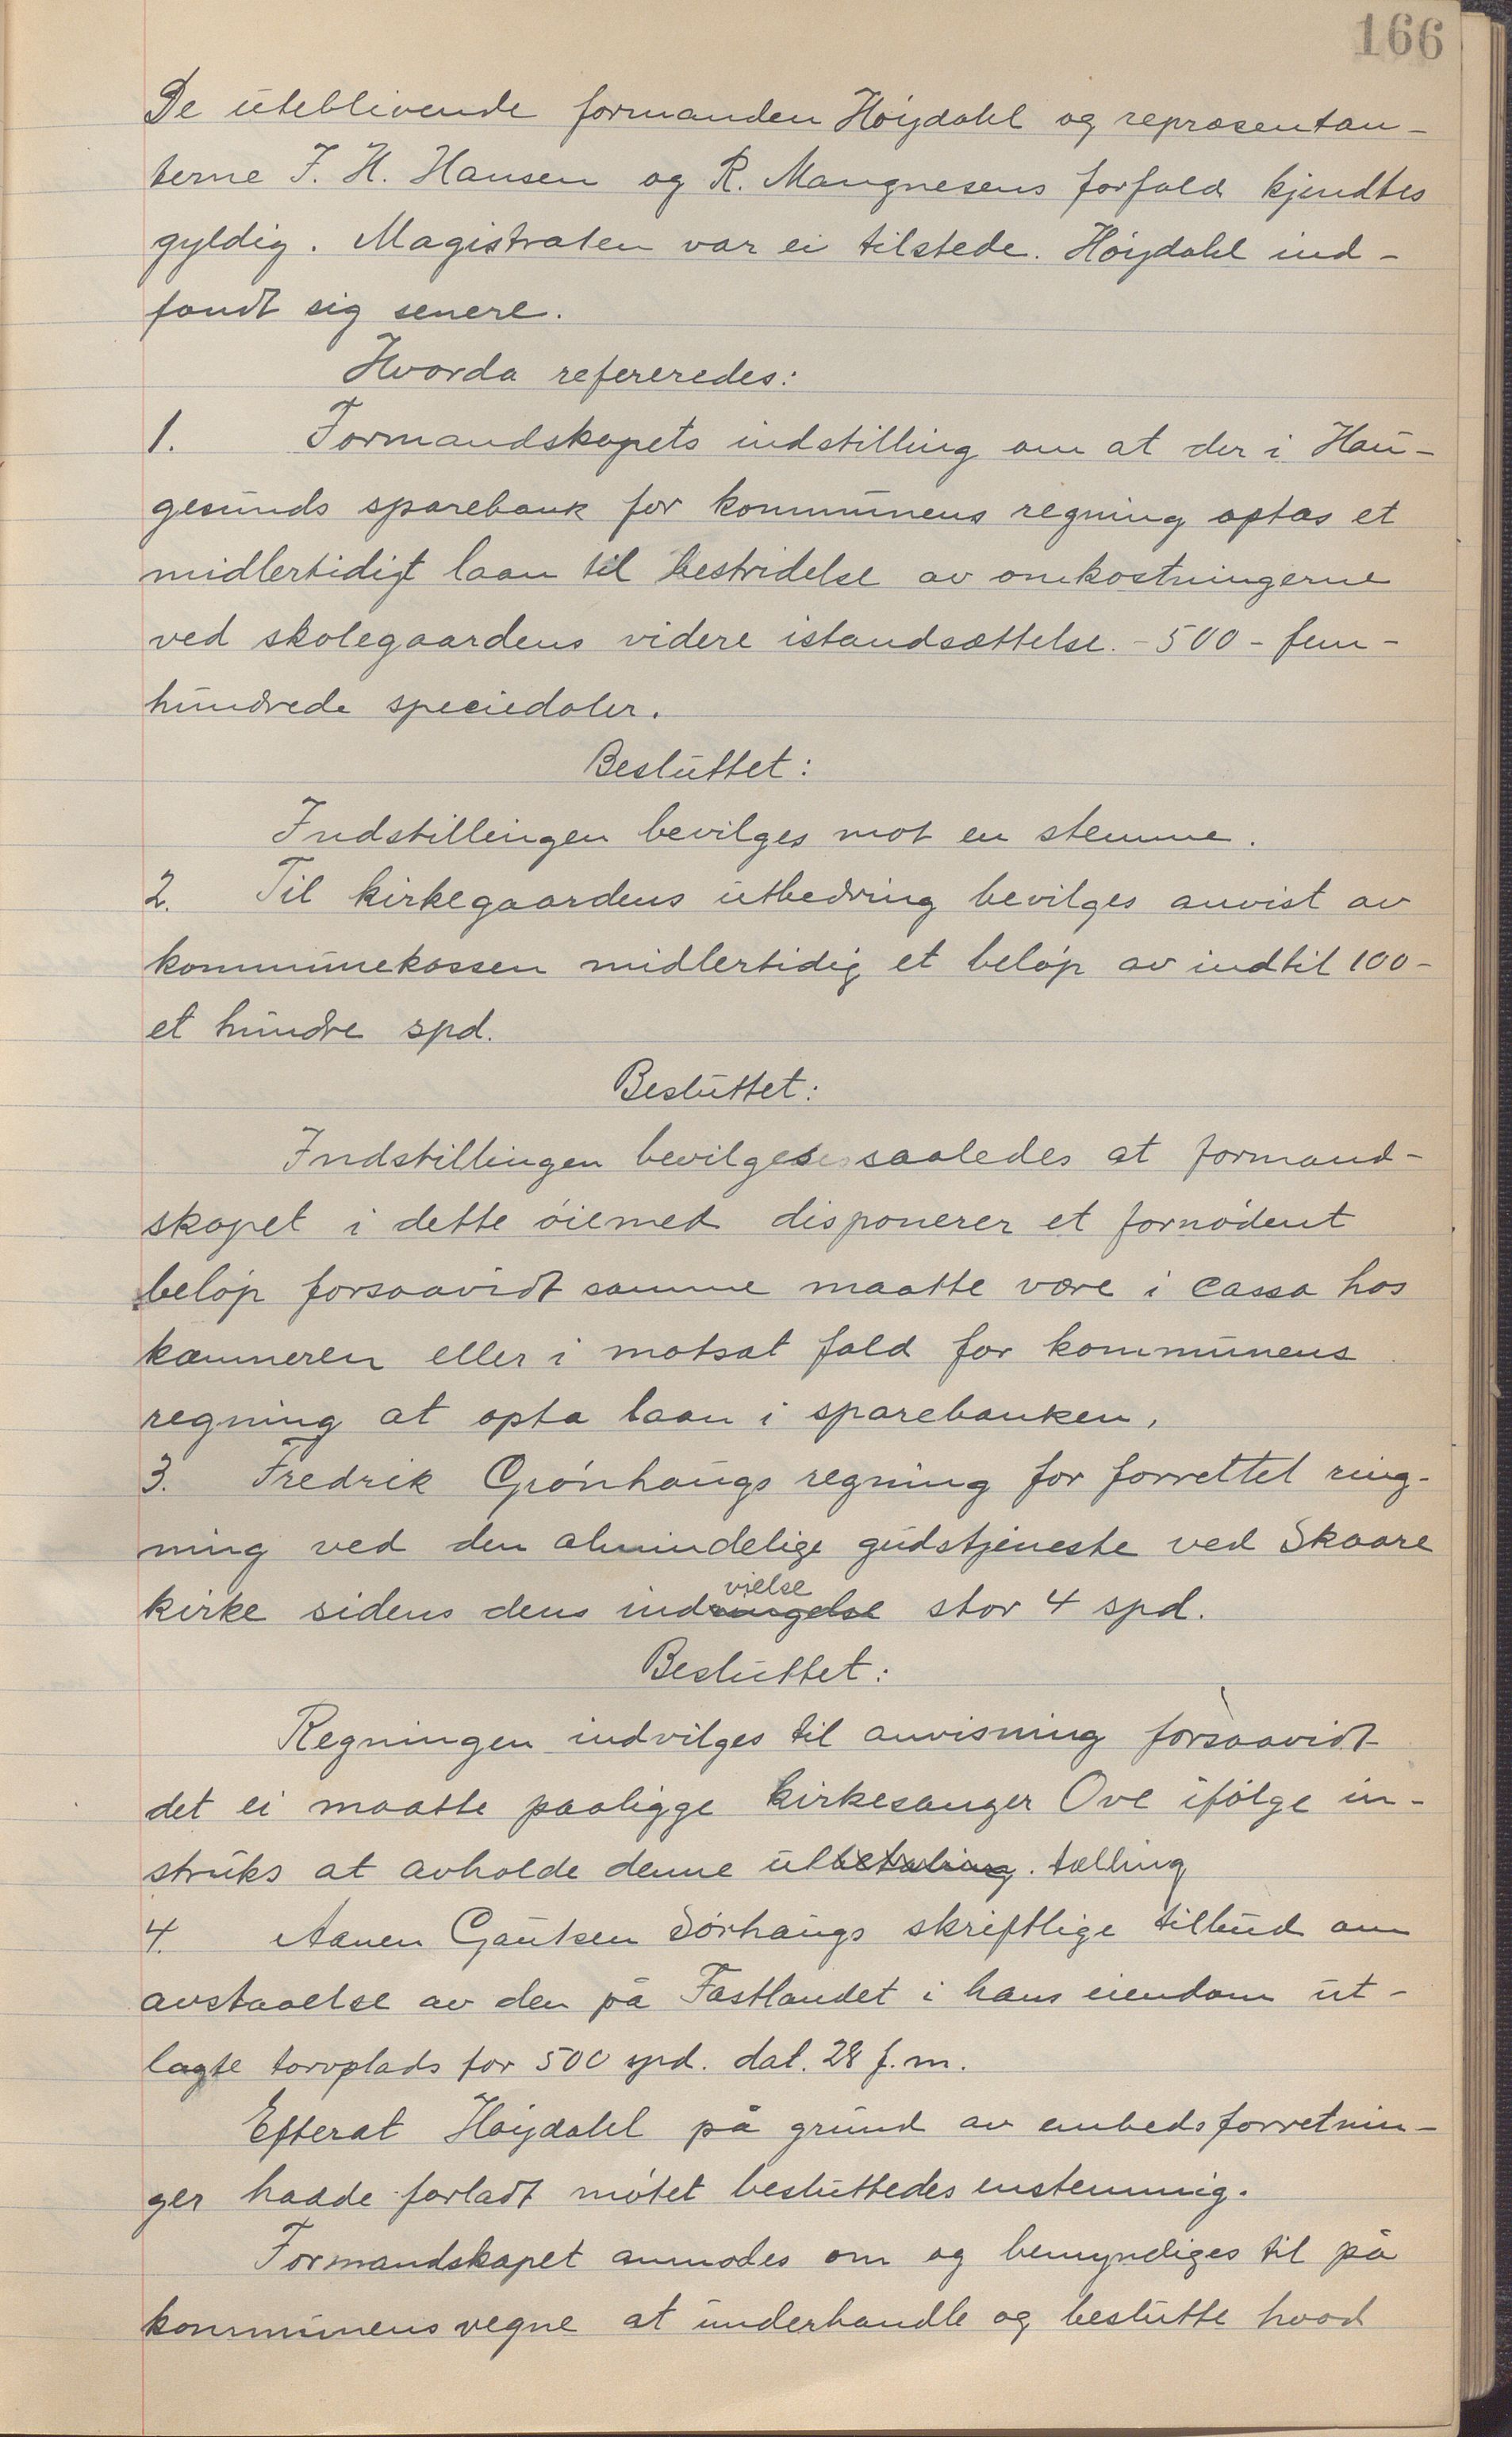 166
De uteblivende formanden Høijdahl og repræsentan-
terne J. H. Hansen og R. Mangnesens forfald kjendtes
gyldig. Magistraten var ei tilstede. Høijdahl ind-
fandt sig senere.
Hvorda refereredes:
1. Formandskapets indstilling om at der i Hau-
gesunds sparebank for kommunens regning optas et
midlertidigt laan til bestridelse av omkostningerne
ved skolegaardens videre istandsættelse. - 500 - fem-
hundrede speciedaler.
Besluttet:
Indstillingen bevilges mot en stemme.
2. Til kirkegaardens utbedring bevilges anvist av
kommunekassen midlertidig et beløp av indtil 100-
et hundre spd.
Besluttet:
Indstillingen bevilges saaledes at formand-
skapet i dette øiemed disponerer et fornødent
beløp forsaavidt samme maatte være i cassa hos
kæmneren eller i motsat fald for kommunens
regning at opta laan i sparebanken.
3. Fredrik Grønhaugs regning for forrettet ring-
ning ved den almindelige gudstjeneste ved Skaare
kirke sidens dens indvielse stor 4 spd.
Besluttet:
Regningen indvilges til anvisning forsaavidt
det ei maatte paaligge kirkesanger Ove ifølge in-
struks at avholde denne utbetaling. tælling
4. Aanen Gautsen Sørhaugs skriftlige tilbud om
avstaaelse av den på Fastlandet i hans eiendom ut-
lagte torvplads for 500 spd. dat. 28 f.m.
Efterat Høijdahl på grund av embedsforretnin-
ger hadde forladt møtet besluttedes enstemmig.
Formandskapet anmodes om og bemyndiges til på
kommunens vegne at underhandle og beslutte hvad